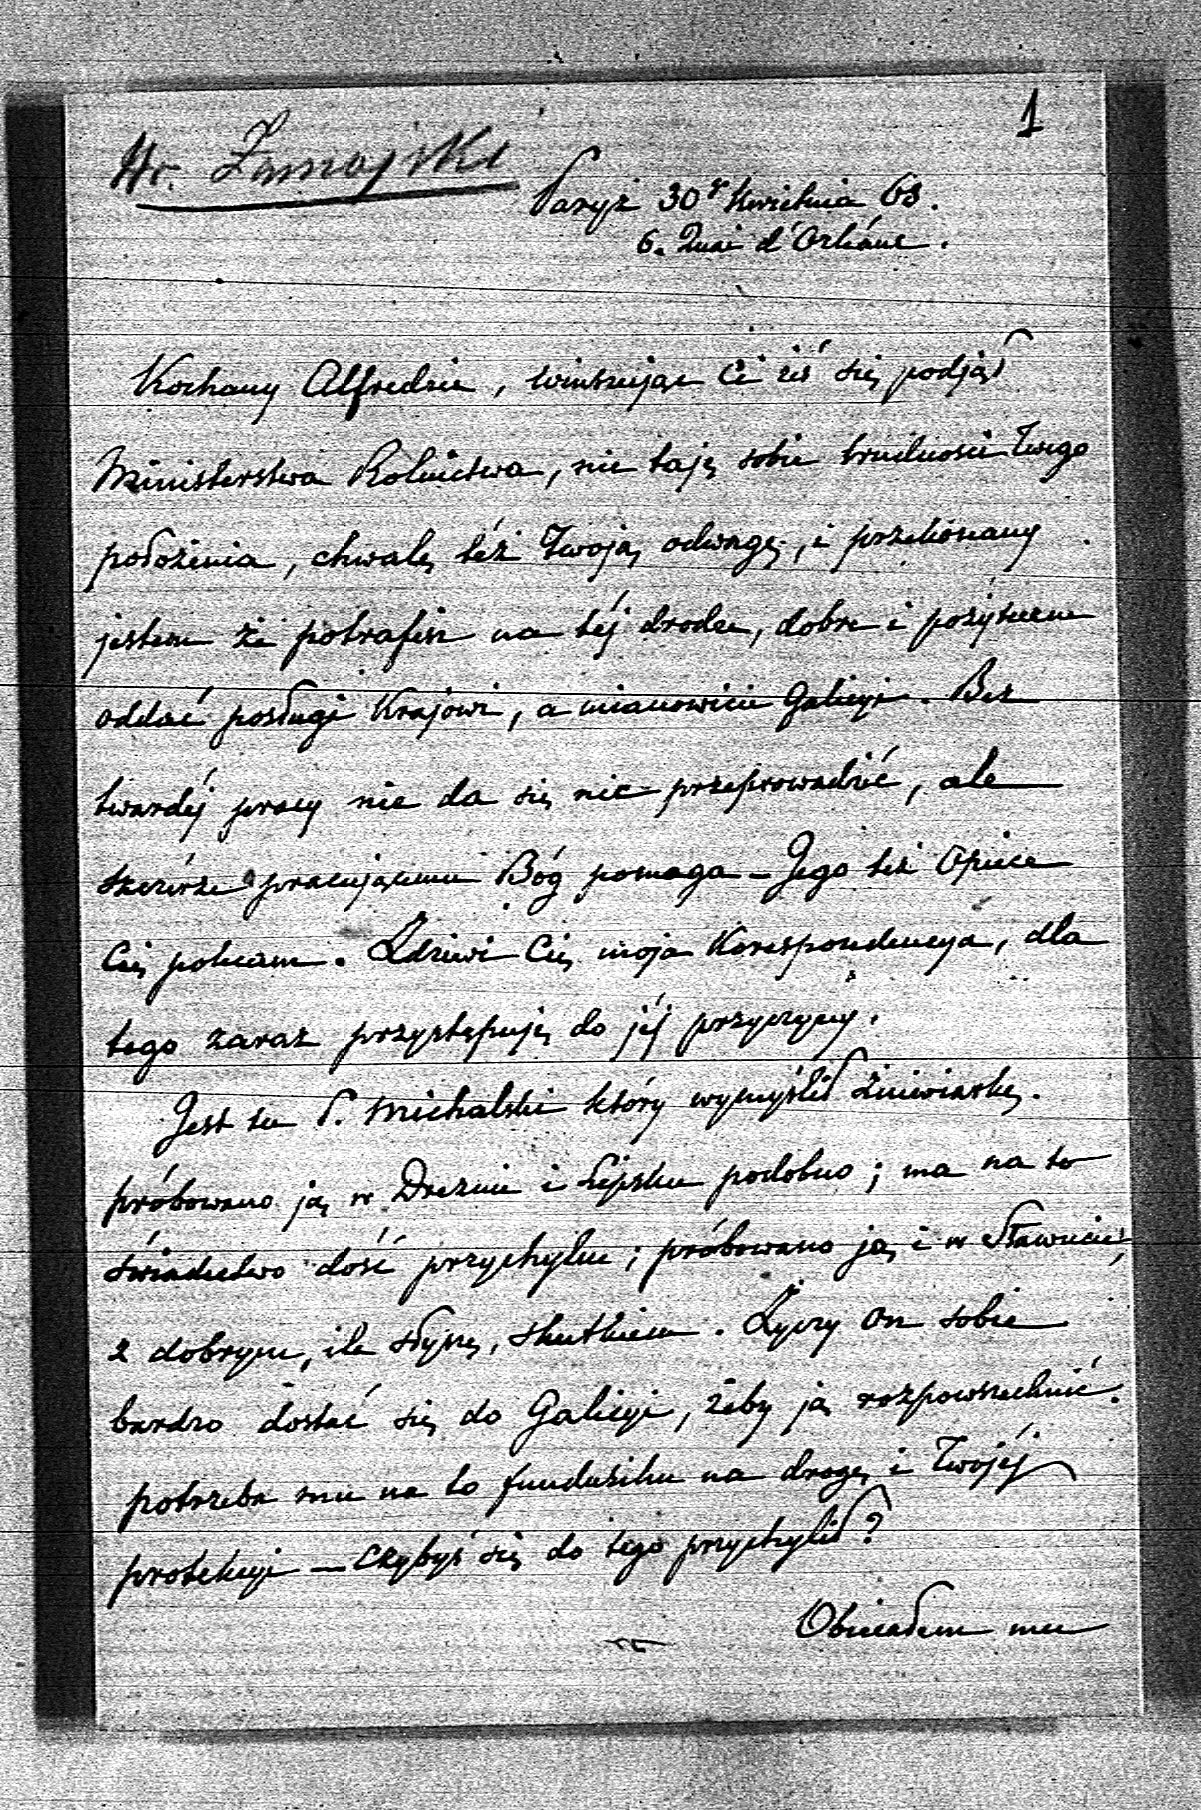 1
Hr. Zamojski
Paryż 30º Kwietnia 68.
6. Quai d'Orléans.
Kochany Alfredzie, winszując Ci żeś się podjął
Ministerstwa Rolnictwa, nie taję sobie trudności Twego
położenia, chwalę téż Twoją odwagę, i przekonany
jestem że potrafisz na téj drodze, dobre i pożyteczne
oddać posługi Krajowi, a mianowicie Galicyi. Bez
twardéj pracy nie da się nic przeprowadzić, ale
szczérze pracującemu Bóg pomaga – Jego też Opiece
Cię polecam. Zdziwi Cię moja Korespondencya, dla
tego zaraz przystępuję do jéj przyczyny.
Jest tu P. Michalski który wymyślił żniwiarkę.
próbowano ją w Dreznie i Lipsku podobno; ma na to
świadectwo dość przychylne; próbowano ją i w Sławucie,
z dobrym, ile słyszę, skutkiem. Życzy on sobie
bardzo dostać się do Galicyi, żeby ją rozpowszechnić.
potrzeba mu na to fundusiku na drogę i Twojéj
protekcyi – czybyś się do tego przychylił?
Obiecałem mu